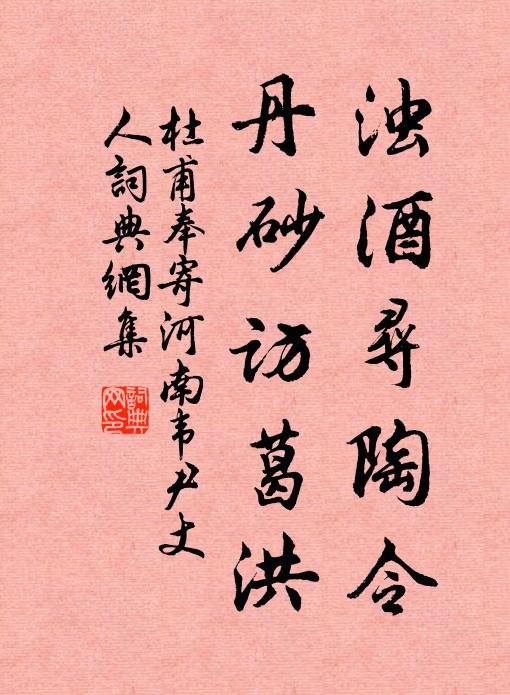 浊酒寻陶令
丹砂访葛洪
杜甫奉寄河南韦尹丈
人詞典網集
詞典
网印